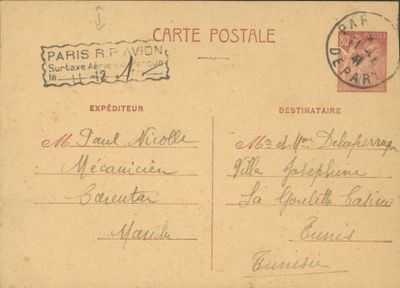 CARTE POSTALE
PARIS R.P. AVION
Surtaxe Aérienne perçue
le 11 12 41
80
PAR
41
DEPART
EXPÉDITEUR
M Paul Nicolle
Mécanicien
Carentan
Manche
DESTINATAIRE
Mr et Mme
Villa Joséphine
La Goulette Casino
Tunis
Tunisie